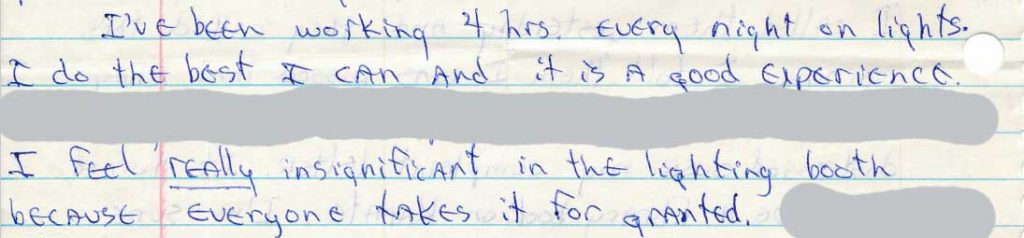 I've been working 4 hrs. every night on lights.
I do the best I can and it is a good experience.
I feel really insignificant in the lighting booth
because everyone takes it for granted.